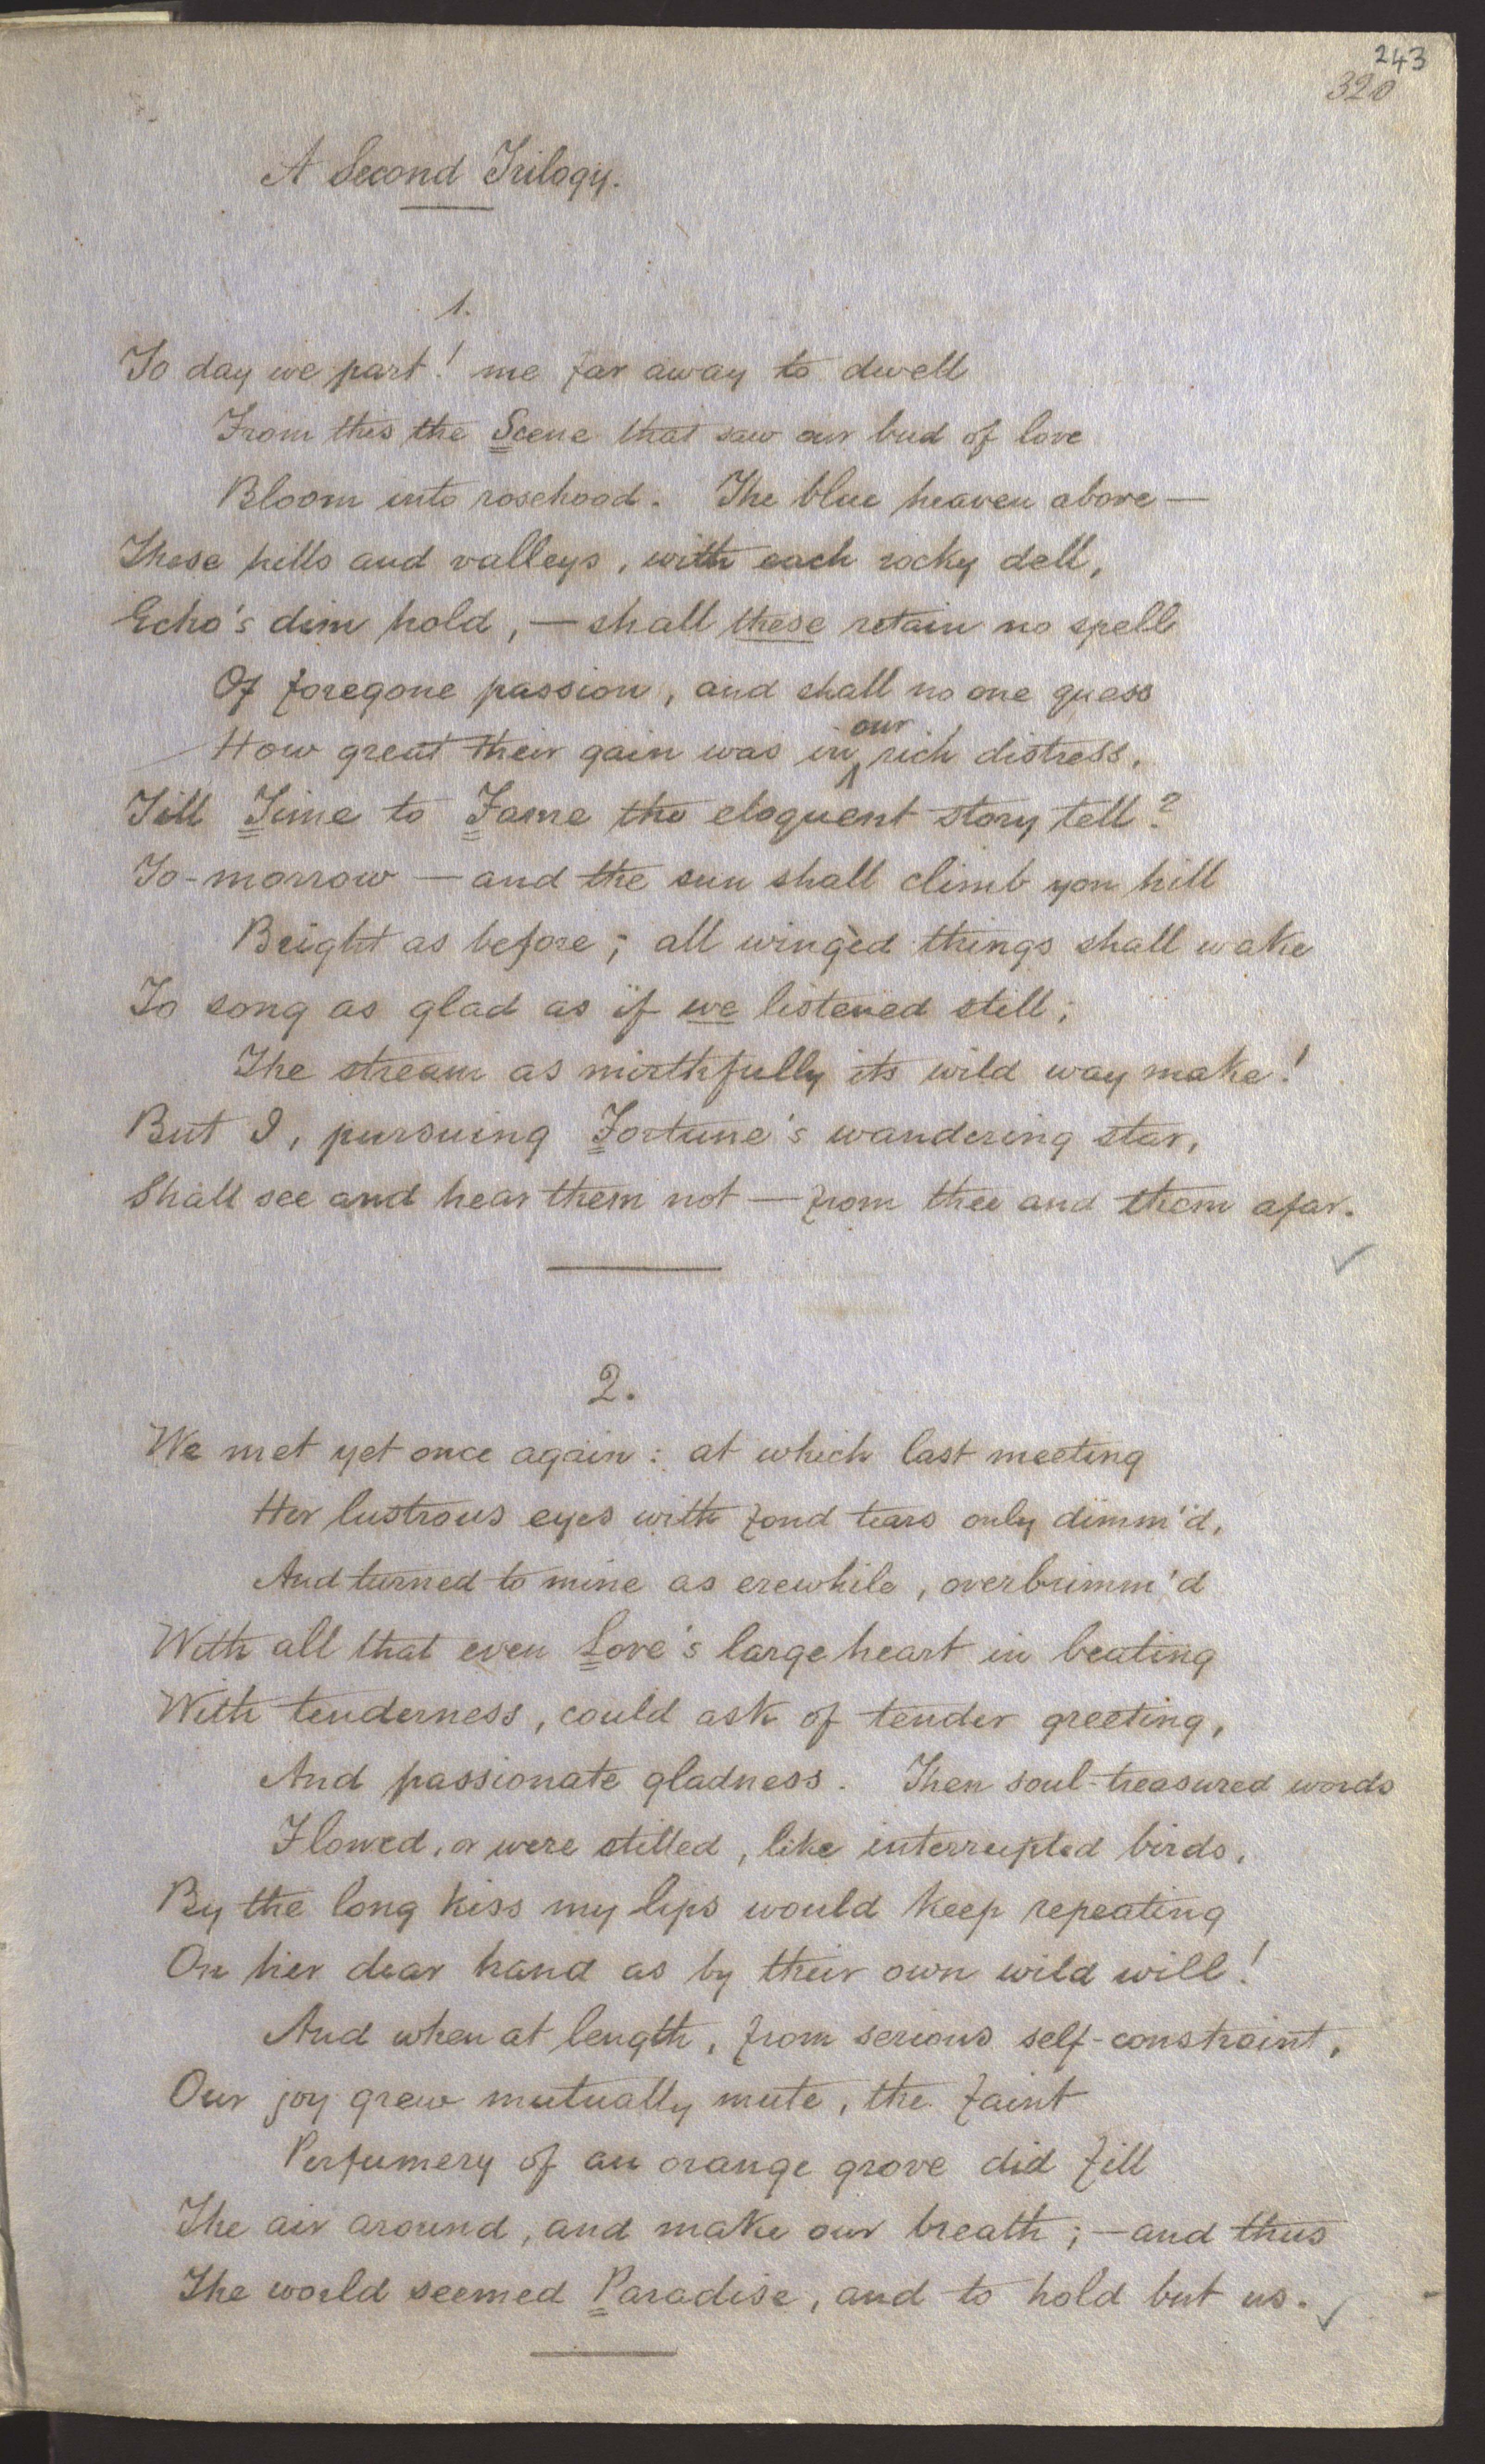 243
320
A Second Trilogy.
1.
To day we part! me far away to dwell
From this the Scene that saw our bud of love
Bloom into rosehood. The blue heaven above —
These hills and valleys, with each rocky dell,
Echo's dim hold, — shall these retain no spell
Of foregone passion, and shall no one guess
How great their gain was in our rich distress,
Till Time to Fame the eloquent story tell?
To-morrow — and the sun shall climb yon hill
Bright as before; all wingèd things shall wake
To song as glad as if we listened still;
The stream as mirthfully its wild way make!
But I, pursuing Fortune's wandering star,
Shall see and hear them not — from thee and them afar.
2.
We met yet once again: at which last meeting
Her lustrous eyes with fond tears only dimm'd,
And turned to mine as erewhile, overbrimm'd
With all that even Love's large heart in beating
With tenderness, could ask of tender greeting,
And passionate gladness. Then soul-treasured words
Flowed, or were stilled, like interrupted birds,
By the long kiss my lips would keep repeating
On her dear hand as by their own wild will!
And when at length, from serious self-constraint,
Our joy grew mutually mute, the faint
Perfumery of an orange grove did fill
The air around, and make our breath; — and thus
The world seemed Paradise, and to hold but us.